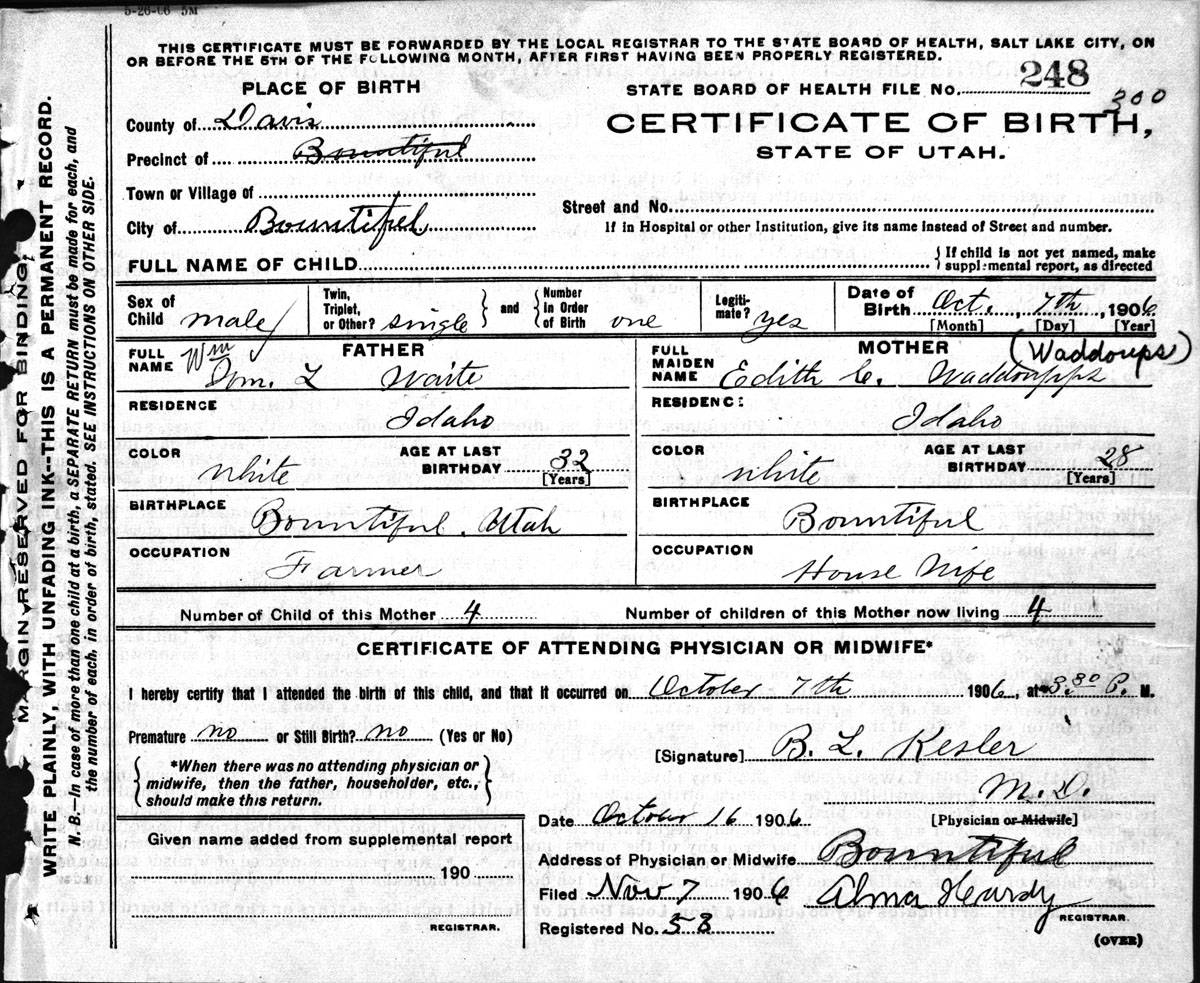 5-26-06 5M
THIS CERTIFICATE MUST BE FORWARDED BY THE LOCAL REGISTRAR TO THE STATE BOARD OF HEALTH, SALT LAKE CITY, ON
OR BEFORE THE 5TH OF THE FOLLOWING MONTH, AFTER FIRST HAVING BEEN PROPERLY REGISTERED.
PLACE OF BIRTH
STATE BOARD OF HEALTH FILE No. 248
300
County of Davis
CERTIFICATE OF BIRTH,
Precinct of Bountiful
STATE OF UTAH.
Town or Village of
Street and No.
City of Bountiful
If in Hospital or other Institution, give its name instead of Street and number.
FULL NAME OF CHILD
{If child is not yet named, make
supplemental report, as directed
Sex of Child male
Twin, Triplet, or Other? single } and { Number in Order of Birth one
Legitimate? yes
Date of Birth Oct. 7th, 1906
[Month] [Day] [Year]
FATHER
FULL NAME Wm
Wm. L Waite
RESIDENCE
Idaho
COLOR white
AGE AT LAST BIRTHDAY 32
[Years]
BIRTHPLACE
Bountiful. Utah
OCCUPATION
Farmer
MOTHER (Waddoups)
FULL MAIDEN NAME Edith C. Waddoupps
RESIDENCE
Idaho
COLOR white
AGE AT LAST BIRTHDAY 28
[Years]
BIRTHPLACE
Bountiful
OCCUPATION
House Wife
Number of Child of this Mother 4 Number of children of this Mother now living 4
CERTIFICATE OF ATTENDING PHYSICIAN OR MIDWIFE*
I hereby certify that I attended the birth of this child, and that it occurred on October 7th 1906, at 3.30 P. M.
Premature no or Still Birth? no (Yes or No)
{ *When there was no attending physician or
midwife, then the father, householder, etc.,
should make this return. }
[Signature] B. L. Kesler
M.D.
[Physician or Midwife]
Date October 16 1906
Address of Physician or Midwife Bountiful
Filed Nov 7 1906 Alma Hardy
REGISTRAR.
Registered No. 58
(OVER)
Given name added from supplemental report
190
REGISTRAR.
MARGIN RESERVED FOR BINDING
WRITE PLAINLY, WITH UNFADING INK--THIS IS A PERMANENT RECORD.
N. B.—In case of more than one child at a birth, a SEPARATE RETURN must be made for each, and
the number of each, in order of birth, stated. SEE INSTRUCTIONS ON OTHER SIDE.